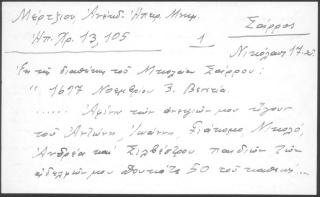 Μέρτζιου Ἀνέκδ. Ἠπειρ. Μνημ.
Σάρρος
Ἠπ. Χρ. 13, 105
1
Νικόλαος 17.αἰ.
Ἐκ τῆς διαθήκης τοῦ Νικολάου Σάρρου:
" 1677 Νοεμβρίου 3. Βενετία.
...... Ἀφίνω τῶν ἀνεψιῶν μου
τοῦ Ἀντώνη, Ἰωάννη, Γιάκομο, Νικολό,
Ἀνδρέα καὶ Σιλβέστρου παιδιῶν τῶν
ἀδελφῶν μου δουκάτα 50 τοῦ καθενός...